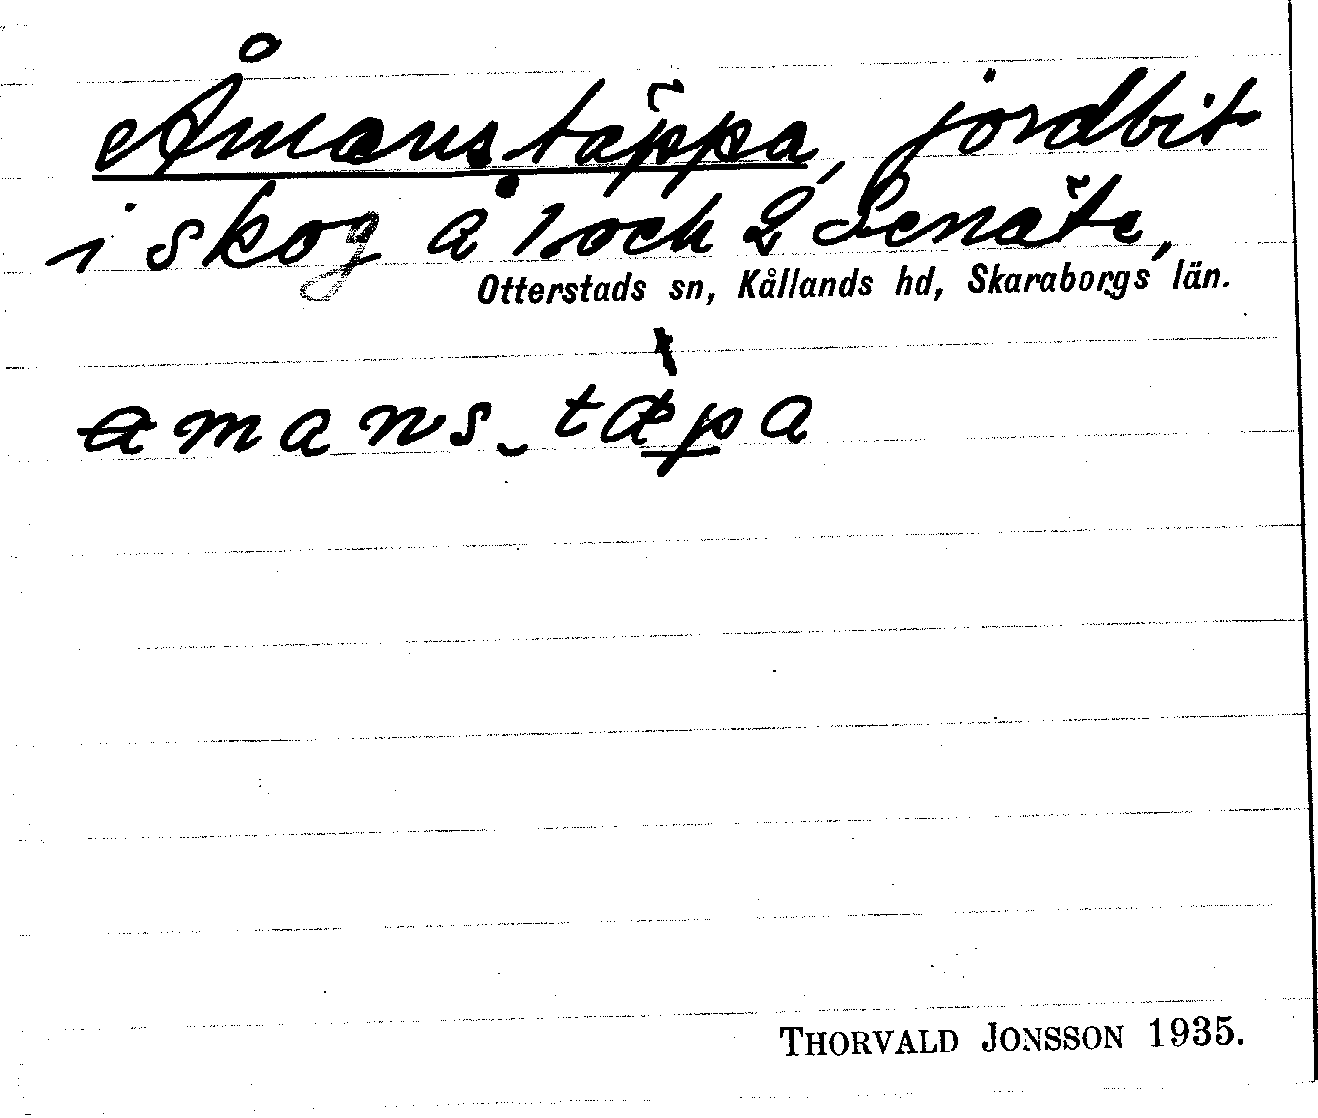 Åmanstäppa, jordbit
i skog å 1 och 2 Senäte,
Otterstads sn, Kållands hd, Skaraborgs län.
amans_tæpa
THORVALD JONSSON 1935.